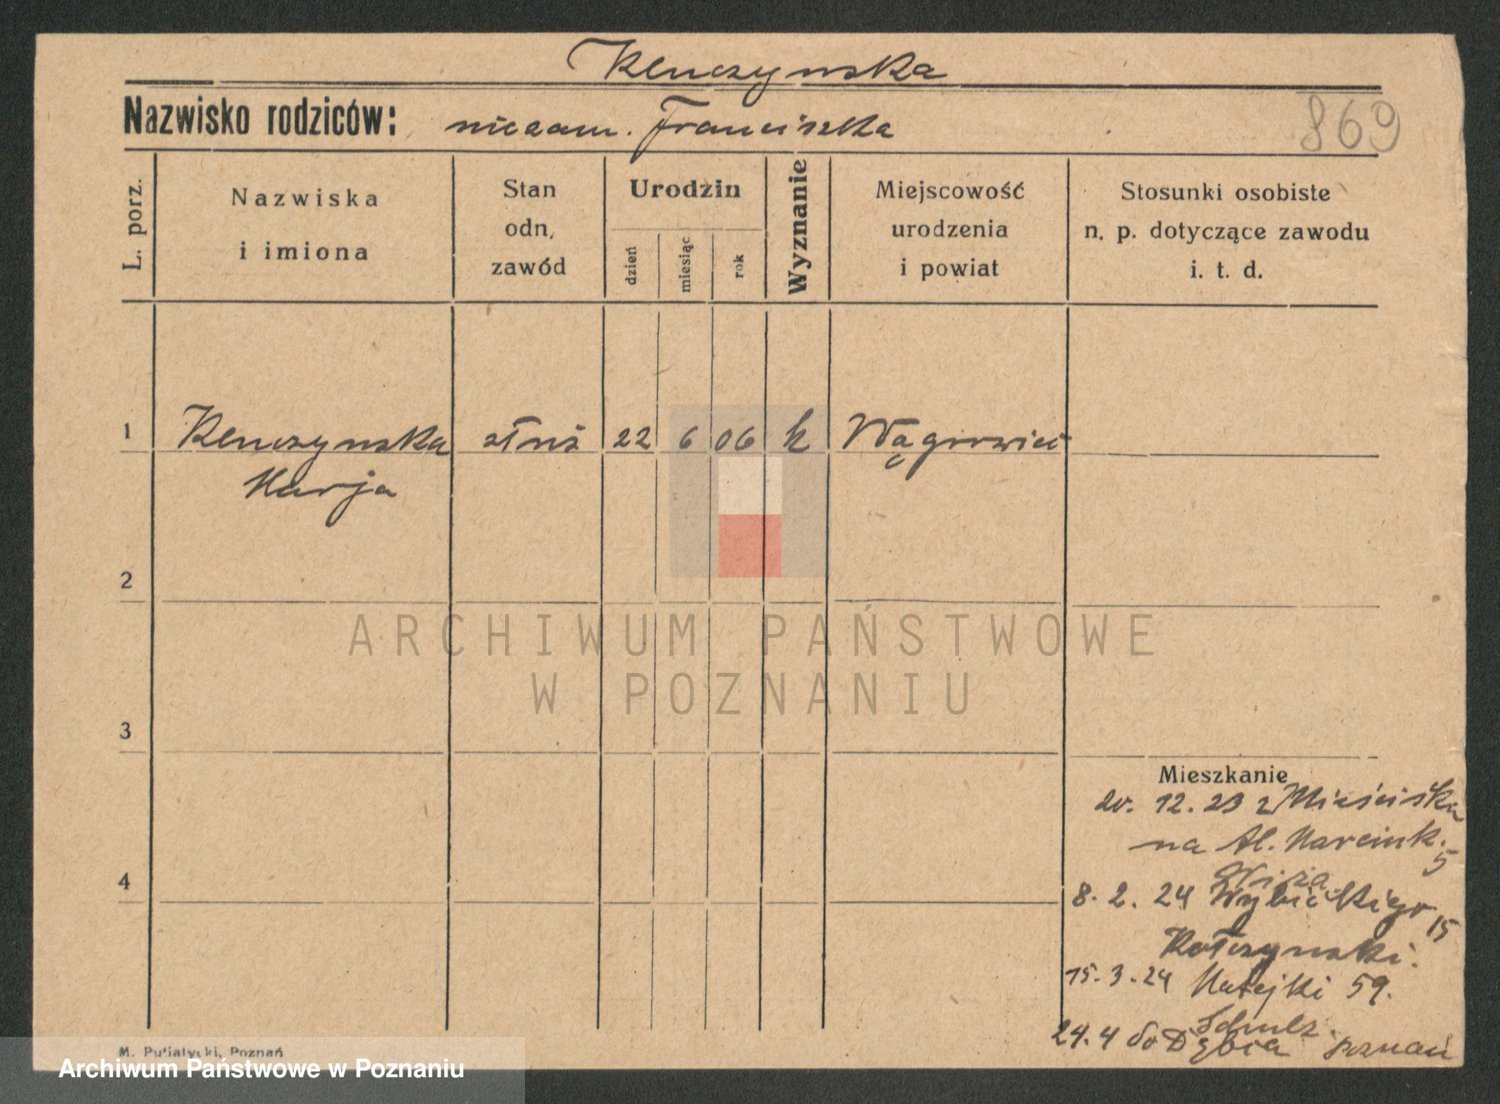 Kluczynska
Nazwisko rodziców: niezam. Franciszka
869
L. porz.
Nazwiska
i imiona
Stan
odn,
zawód
Urodzin
dzień
miesiąc
rok
Wyznanie
Miejscowość
urodzenia
i powiat
Stosunki osobiste
n. p. dotyczące zawodu
i. t. d.
1 Kluczynska służ 22 6 06 k Wągrowiec
Marja
2
3
4
ARCHIWUM PAŃSTWOWE
W POZNANIU
Mieszkanie
20. 12. 23 z Mieściska
na Al. Marcink. 5
8. 2. 24 Wybickiego 15
15. 3. 24 Matejki 59.
Schulz.
24. 4 do Dębia poznań
M. Putiatycki, Poznań
Archiwum Państwowe w Poznaniu